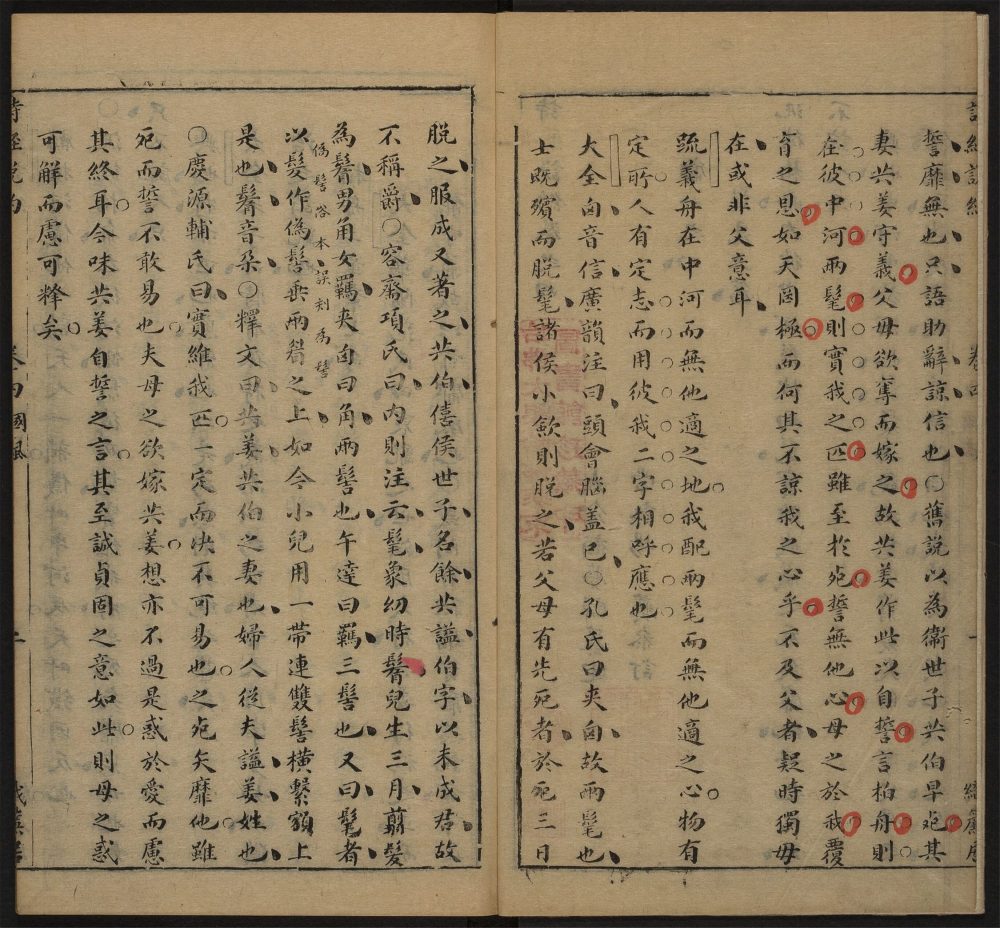 誓靡無也只語助辭諒信也○舊說以為衛世子共伯早死其
妻共姜守義父母欲奪而嫁之故共姜作此以自誓言柏舟則
在彼中河兩髦則實我之匹雖至於死誓無他心母之於我覆
育之恩如天罔極而何其不諒我之心乎不及父者疑時獨母
在或非父意耳
疏義舟在中河而無他適之地我配兩髦而無他適之心物有
定所人有定志而用彼我二字相呼應也
大全囟音信廣韻注曰頭會腦蓋已○孔氏曰夾囟故兩髦也
士既殯而脫髦諸侯小斂則脫之若父母有先死者於死三日
脫之服成又著之共伯僖侯世子名餘共謚伯字以未成君故
不稱爵○容齋項氏曰內則注云髦象幼時鬌兒生三月翦髮
為鬌男角女羈夾囟曰角兩髻也午達曰羈三髻也又曰髦者
偽髻俗本誤刻為髻
以髮作偽髻垂兩眉之上如今小兒用一帶連雙髻橫繫額上
是也鬌音朶○釋文曰共姜共伯之妻也婦人從夫謚姜姓也
○慶源輔氏曰實維我匹一定而決不可易也之死矢靡他雖
死而誓不敢易也夫母之欲嫁共姜想亦不過是惑於愛而慮
其終耳今味共姜自誓之言其至誠貞固之意如此則母之惑
可解而慮可釋矣
詩經說約
卷四國風
二